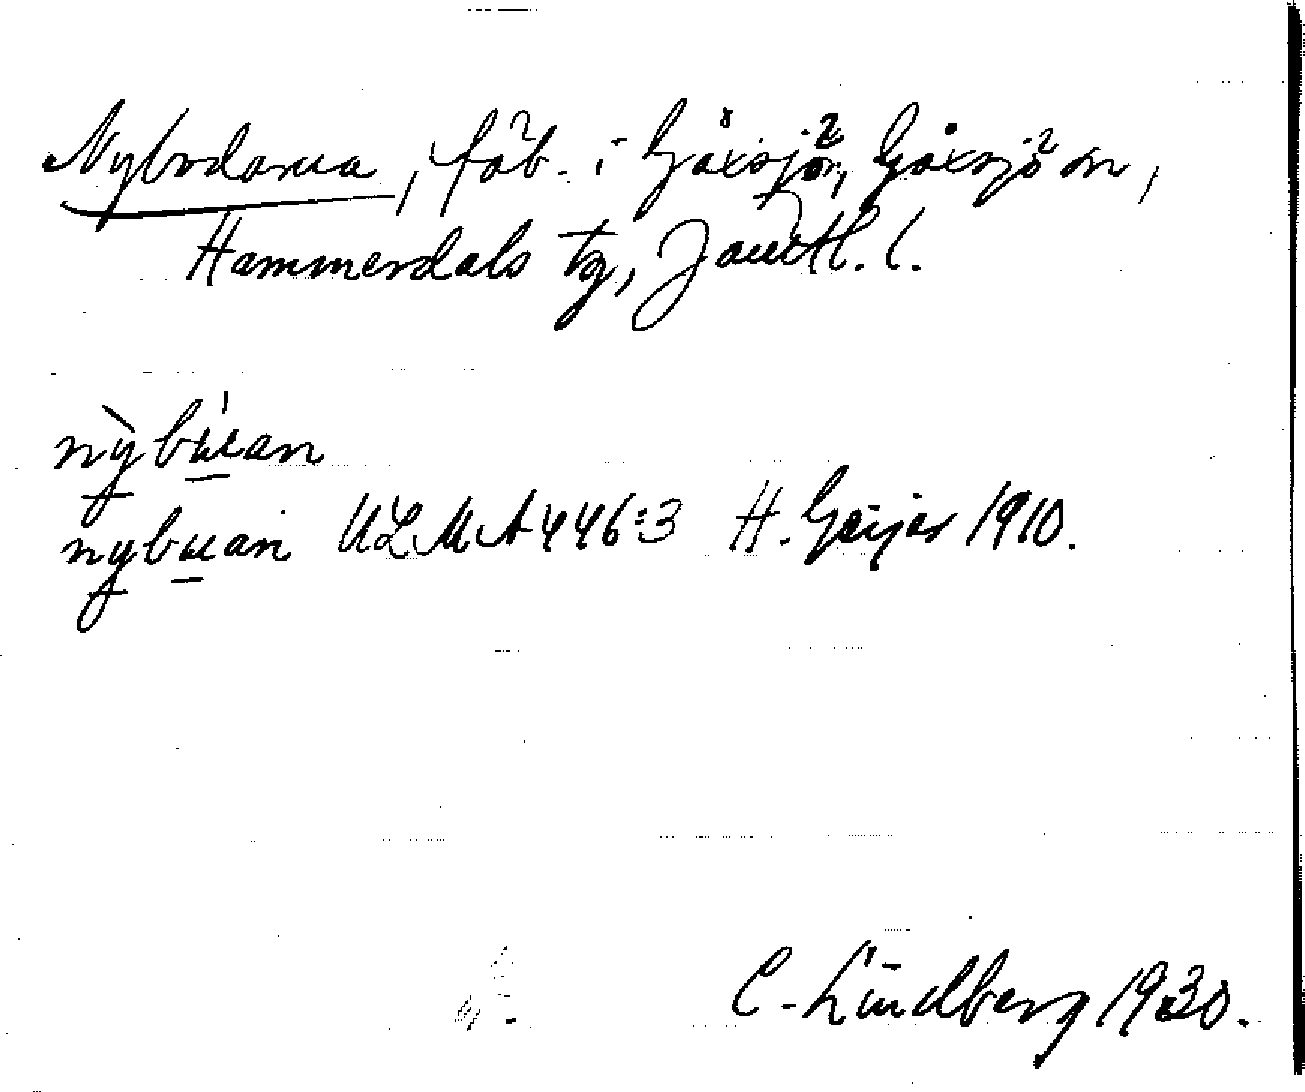 Nybodarna, fäb. i Gåxsjö, Gåxsjön,
Hammerdals tg, Jämtl. l.
nỳbú̠an
nybu̠an ULMA 446:3 H. Geijer 1910.
C. Lindberg 1930.